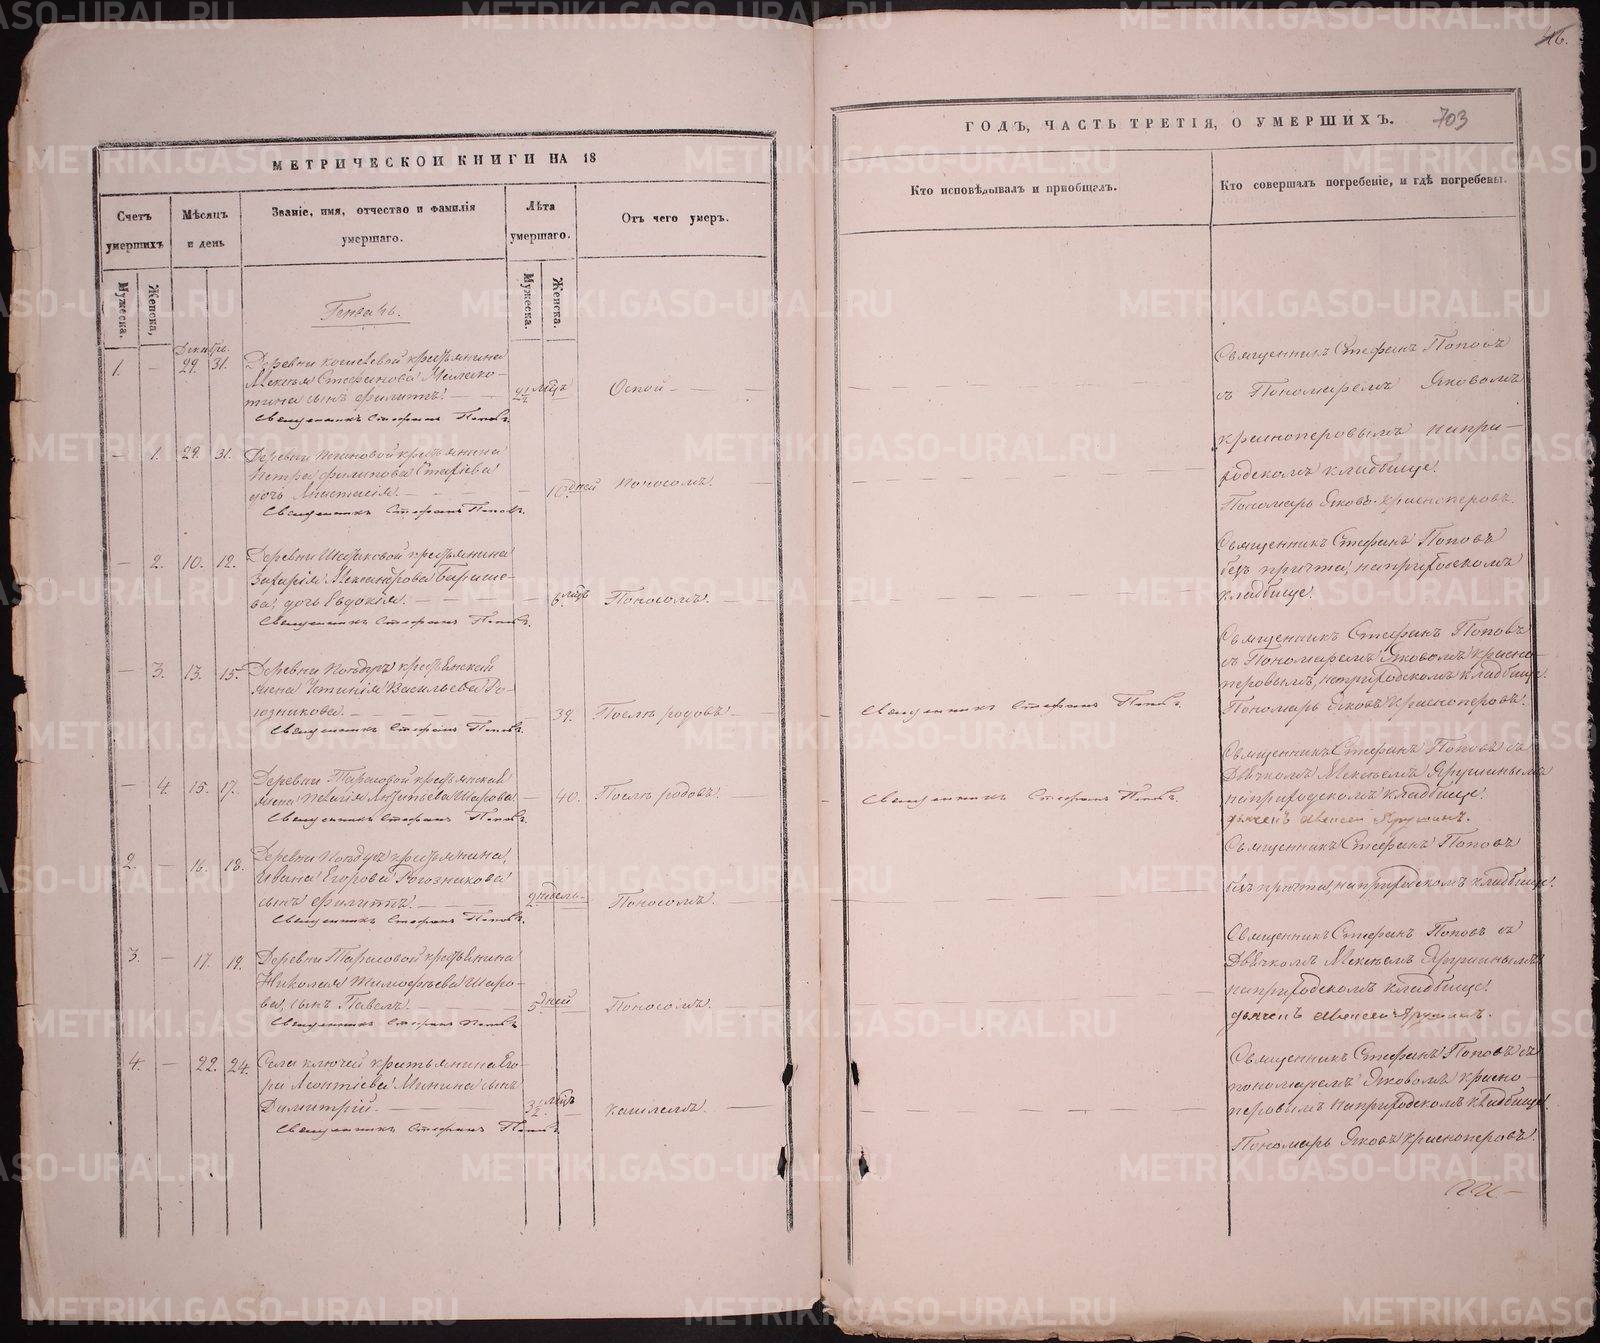 16.
703
МЕТРИЧЕСКОЙ КНИГИ НА 18
ГОДЪ, ЧАСТЬ ТРЕТІЯ, О УМЕРШИХЪ.
Счетъ умершихъ
Мѣсяцъ и день
Званіе, имя, отчество и фамилія умершаго.
Лѣта умершаго.
Отъ чего умеръ.
Кто исповѣдывалъ и пріобщалъ.
Кто совершалъ погребеніе, и гдѣ погребены.
Мужеска.
Женска,
Мужеска.
Женска.
Генварь.
Декабря.
1. — 29. 31.
Деревни крестьянина
Алексѣя Стефанова
сынъ Филиппъ.
Священникъ Стефанъ Поповъ.
2½ мцъ
Оспой
Священникъ Стефанъ Поповъ
съ Пономаремъ Яковомъ
Красноперовымъ на при-
ходскомъ кладбище.
Пономарь Яковъ Красноперовъ.
— 1. 29. 31.
Деревни крестьянина
Петра Филипова
дочь Анастасія.
Священникъ Стефанъ Поповъ.
10. дней
Поносомъ.
— 2. 10. 12.
Деревни крестьянина
Захарія Александрова Барыше-
ва дочь Евдокія.
Священникъ Стефанъ Поповъ.
6. мцъ
Поносомъ.
Священникъ Стефанъ Поповъ
безъ причта, на приходскомъ
кладбище.
— 3. 13. 15.
Деревни крестьянская
жена Устинія Васильева Ро-
гозникова.
Священникъ Стефанъ Поповъ.
39.
Послѣ родовъ
Священникъ Стефанъ Поповъ.
Священникъ Стефанъ Поповъ
съ Пономаремъ Яковомъ Красно-
перовымъ, на приходскомъ кладбище.
Пономарь Яковъ Красноперовъ.
— 4. 15. 17.
Деревни Тарасовой крестьянская
жена Шарова.
Священникъ Стефанъ Поповъ.
40.
Послѣ родовъ.
Священникъ Стефанъ Поповъ.
Священникъ Стефанъ Поповъ съ
Дьячкомъ Алексѣемъ Ярушинымъ
на приходскомъ кладбище.
дьячекъ Алексей Ярушинъ.
2. — 16. 18.
Деревни крестьянина
Ивана Егорова Рогозникова
сынъ Филиппъ.
Священникъ Стефанъ Поповъ.
2. недель
Поносомъ.
Священникъ Стефанъ Поповъ
безъ причта, на приходскомъ кладбище.
3. — 17. 19.
Деревни Тарасовой крестьянина
Николая Тимофѣева Шаро-
ва, сынъ Павелъ.
Священникъ Стефанъ Поповъ
5. дней
Поносомъ.
Священникъ Стефанъ Поповъ съ
Дьячкомъ Алексѣемъ Ярушинымъ
на приходскомъ кладбище.
дьячекъ Алексей Ярушинъ.
4. — 22. 24.
Села Ключей крестьянина Его-
ра Леонтіева Минина сынъ
Димитрій.
Священникъ Стефанъ Поповъ
3½ мцъ
Кашлемъ.
Священникъ Стефанъ Поповъ съ
пономаремъ Яковомъ Красно-
перовымъ на приходскомъ кладбище.
Пономарь Яковъ Красноперовъ.
METRIKI.GASO-URAL.RU